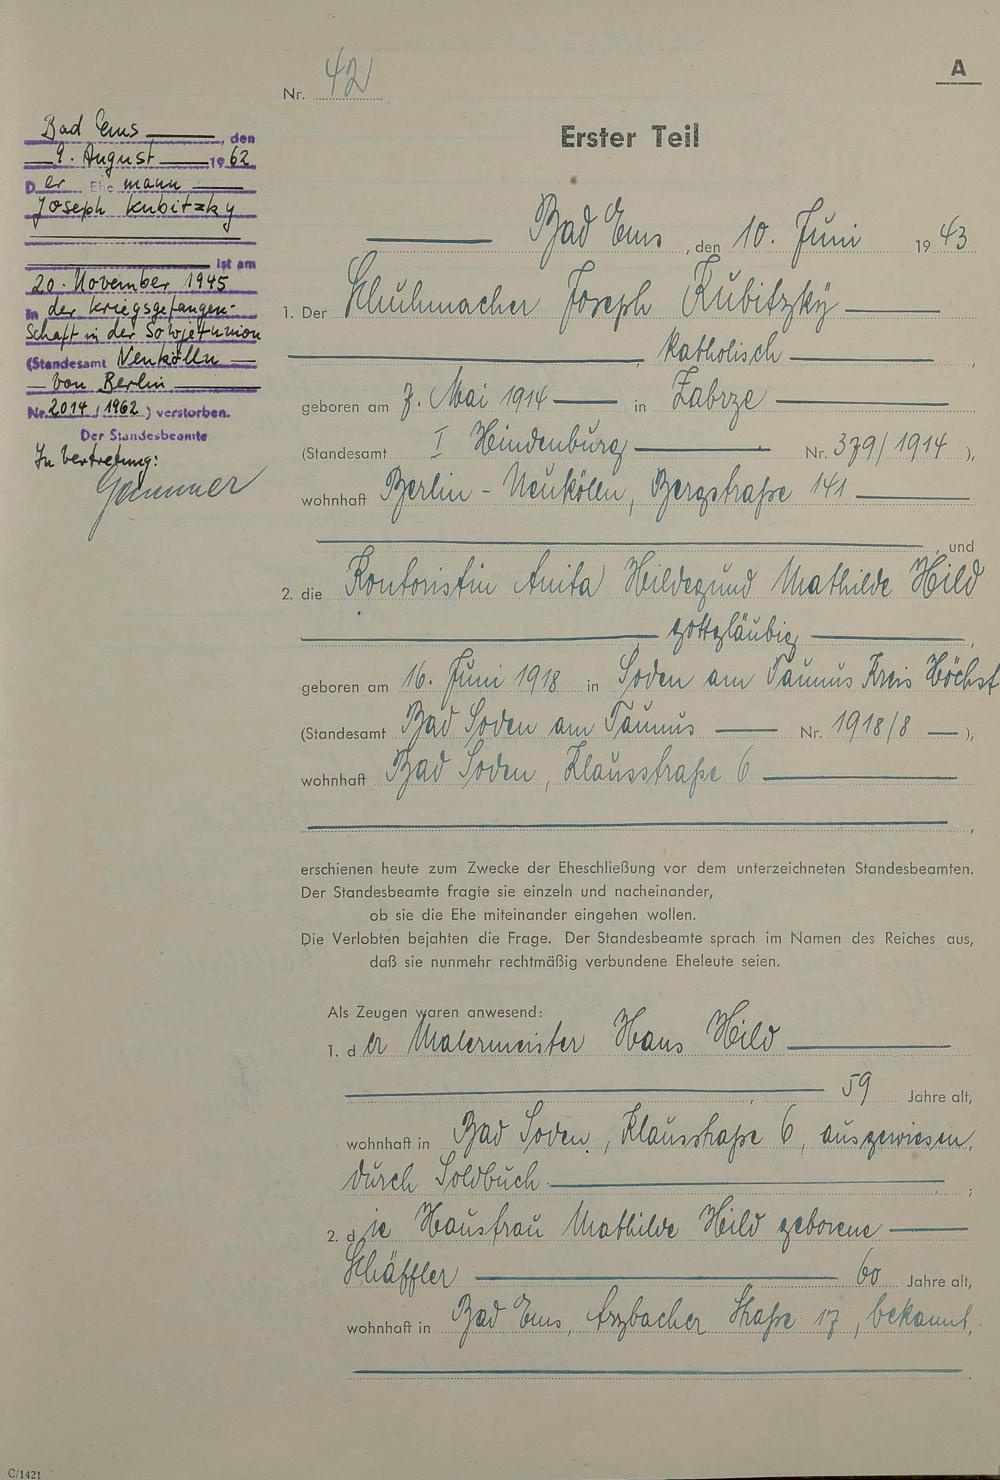 A
Nr. 42
Erster Teil
Bad Ems, den
9. August 1962
Der Ehemann
Joseph Kubitzky
ist am
20. November 1945
in der Kriegsgefangen-
schaft in der Sowjetunion
(Standesamt Neukölln
von Berlin
Nr. 2014/1962) verstorben.
Der Standesbeamte
In Vertretung:
Bad Ems, den 10. Juni 1943
1. Der Schuhmacher Joseph Kubitzky
, katholisch,
geboren am 7. Mai 1914 in Zabrze
(Standesamt I Hindenburg Nr. 379/1914),
wohnhaft Berlin-Neukölln, Bergstraße 141
, und
2. die Kontoristin Anita Hildegund Mathilde Hild
gottgläubig,
geboren am 16. Juni 1918 in Soden am Taunus Kreis Höchst
(Standesamt Bad Soden am Taunus Nr. 1918/8),
wohnhaft Bad Soden, Klausstraße 6
,
erschienen heute zum Zwecke der Eheschließung vor dem unterzeichneten Standesbeamten.
Der Standesbeamte fragte sie einzeln und nacheinander,
ob sie die Ehe miteinander eingehen wollen.
Die Verlobten bejahten die Frage. Der Standesbeamte sprach im Namen des Reiches aus,
daß sie nunmehr rechtmäßig verbundene Eheleute seien.
Als Zeugen waren anwesend:
1. der Malermeister Hans Hild
, 59 Jahre alt,
wohnhaft in Bad Soden, Klausstraße 6, ausgewiesen
durch Soldbuch.;
2. die Hausfrau Mathilde Hild geborene
Schäffler 60 Jahre alt,
wohnhaft in Bad Ems, Arzbacher Straße 17, bekannt.
C/1421